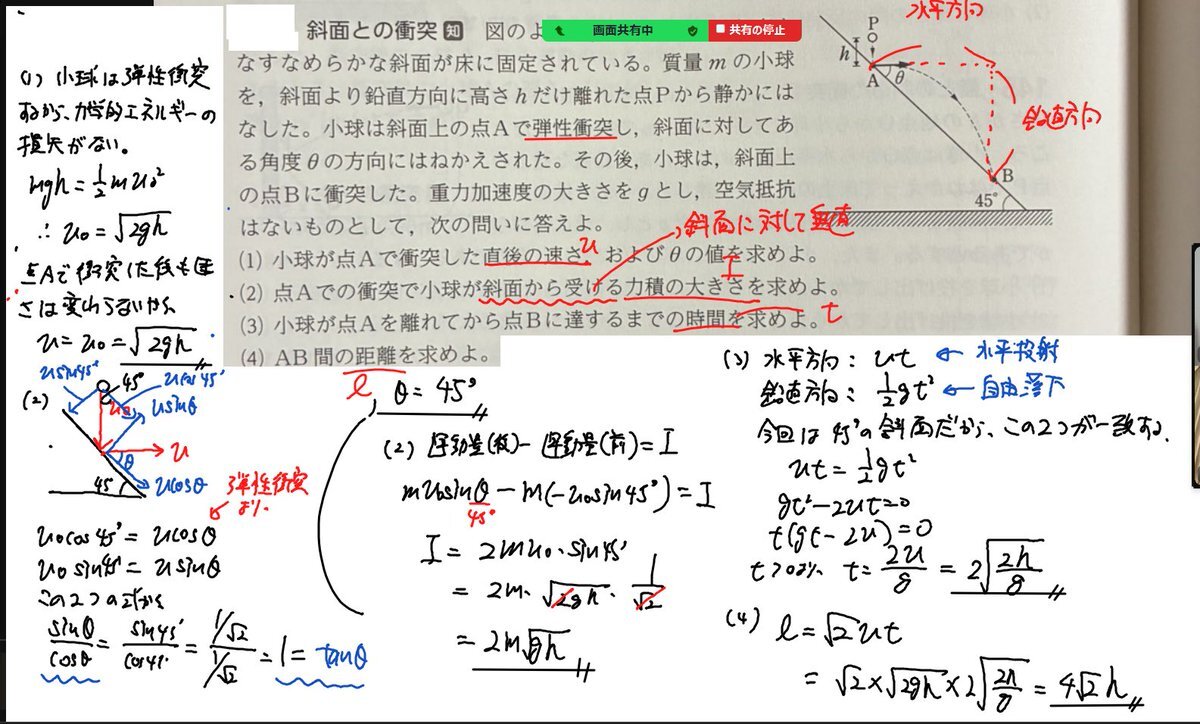 斜面との衝突 知 図のよ
画面共有中
共有の停止
なすなめらかな斜面が床に固定されている。質量 m の小球
を,斜面より鉛直方向に高さ h だけ離れた点Pから静かには
なした。小球は斜面上の点Aで弾性衝突し,斜面に対してあ
る角度 θ の方向にはねかえされた。その後,小球は,斜面上
の点Bに衝突した。重力加速度の大きさを g とし,空気抵抗
はないものとして,次の問いに答えよ。
斜面に対して垂直
(1) 小球が点Aで衝突した直後の速さ u および θ の値を求めよ。
(2) 点Aでの衝突で小球が斜面から受ける力積の大きさを求めよ。
I
(3) 小球が点Aを離れてから点Bに達するまでの時間を求めよ。 t
(4) AB間の距離を求めよ。
l
水平方向
P
h
A
θ
鉛直方向
B
45°
(1) 小球は弾性衝突
するから、力学的エネルギーの
損失がない。
mgh = 1/2 mu₀²
∴ u₀ = √2gh
点Aで衝突した後も速
さは変わらないから
u = u₀ = √2gh
(2)
u₀sin45°
45°
u₀cos45°
u₀
usinθ
u
θ
45°
ucosθ
弾性衝突
より、
u₀cos45° = ucosθ
u₀sin45° = usinθ
この2つの式から
sinθ/cosθ = sin45°/cos45° = (1/√2)/(1/√2) = 1 = tanθ
θ = 45°
(2) 運動量(後) − 運動量(前) = I
mu₀sinθ − m(−u₀sin45°) = I
45°
I = 2mu₀・sin45°
= 2m・√2gh・1/√2
= 2m√gh
(3) 水平方向 : ut ← 水平投射
鉛直方向 : 1/2 gt² ← 自由落下
今回は45°の斜面だから、この2つが一致する。
ut = 1/2 gt²
gt² − 2ut = 0
t(gt − 2u) = 0
t>0より、 t = 2u/g = 2√(2h/g)
(4) l = √2 ut
= √2 × √2gh × 2√(2h/g) = 4√2 h